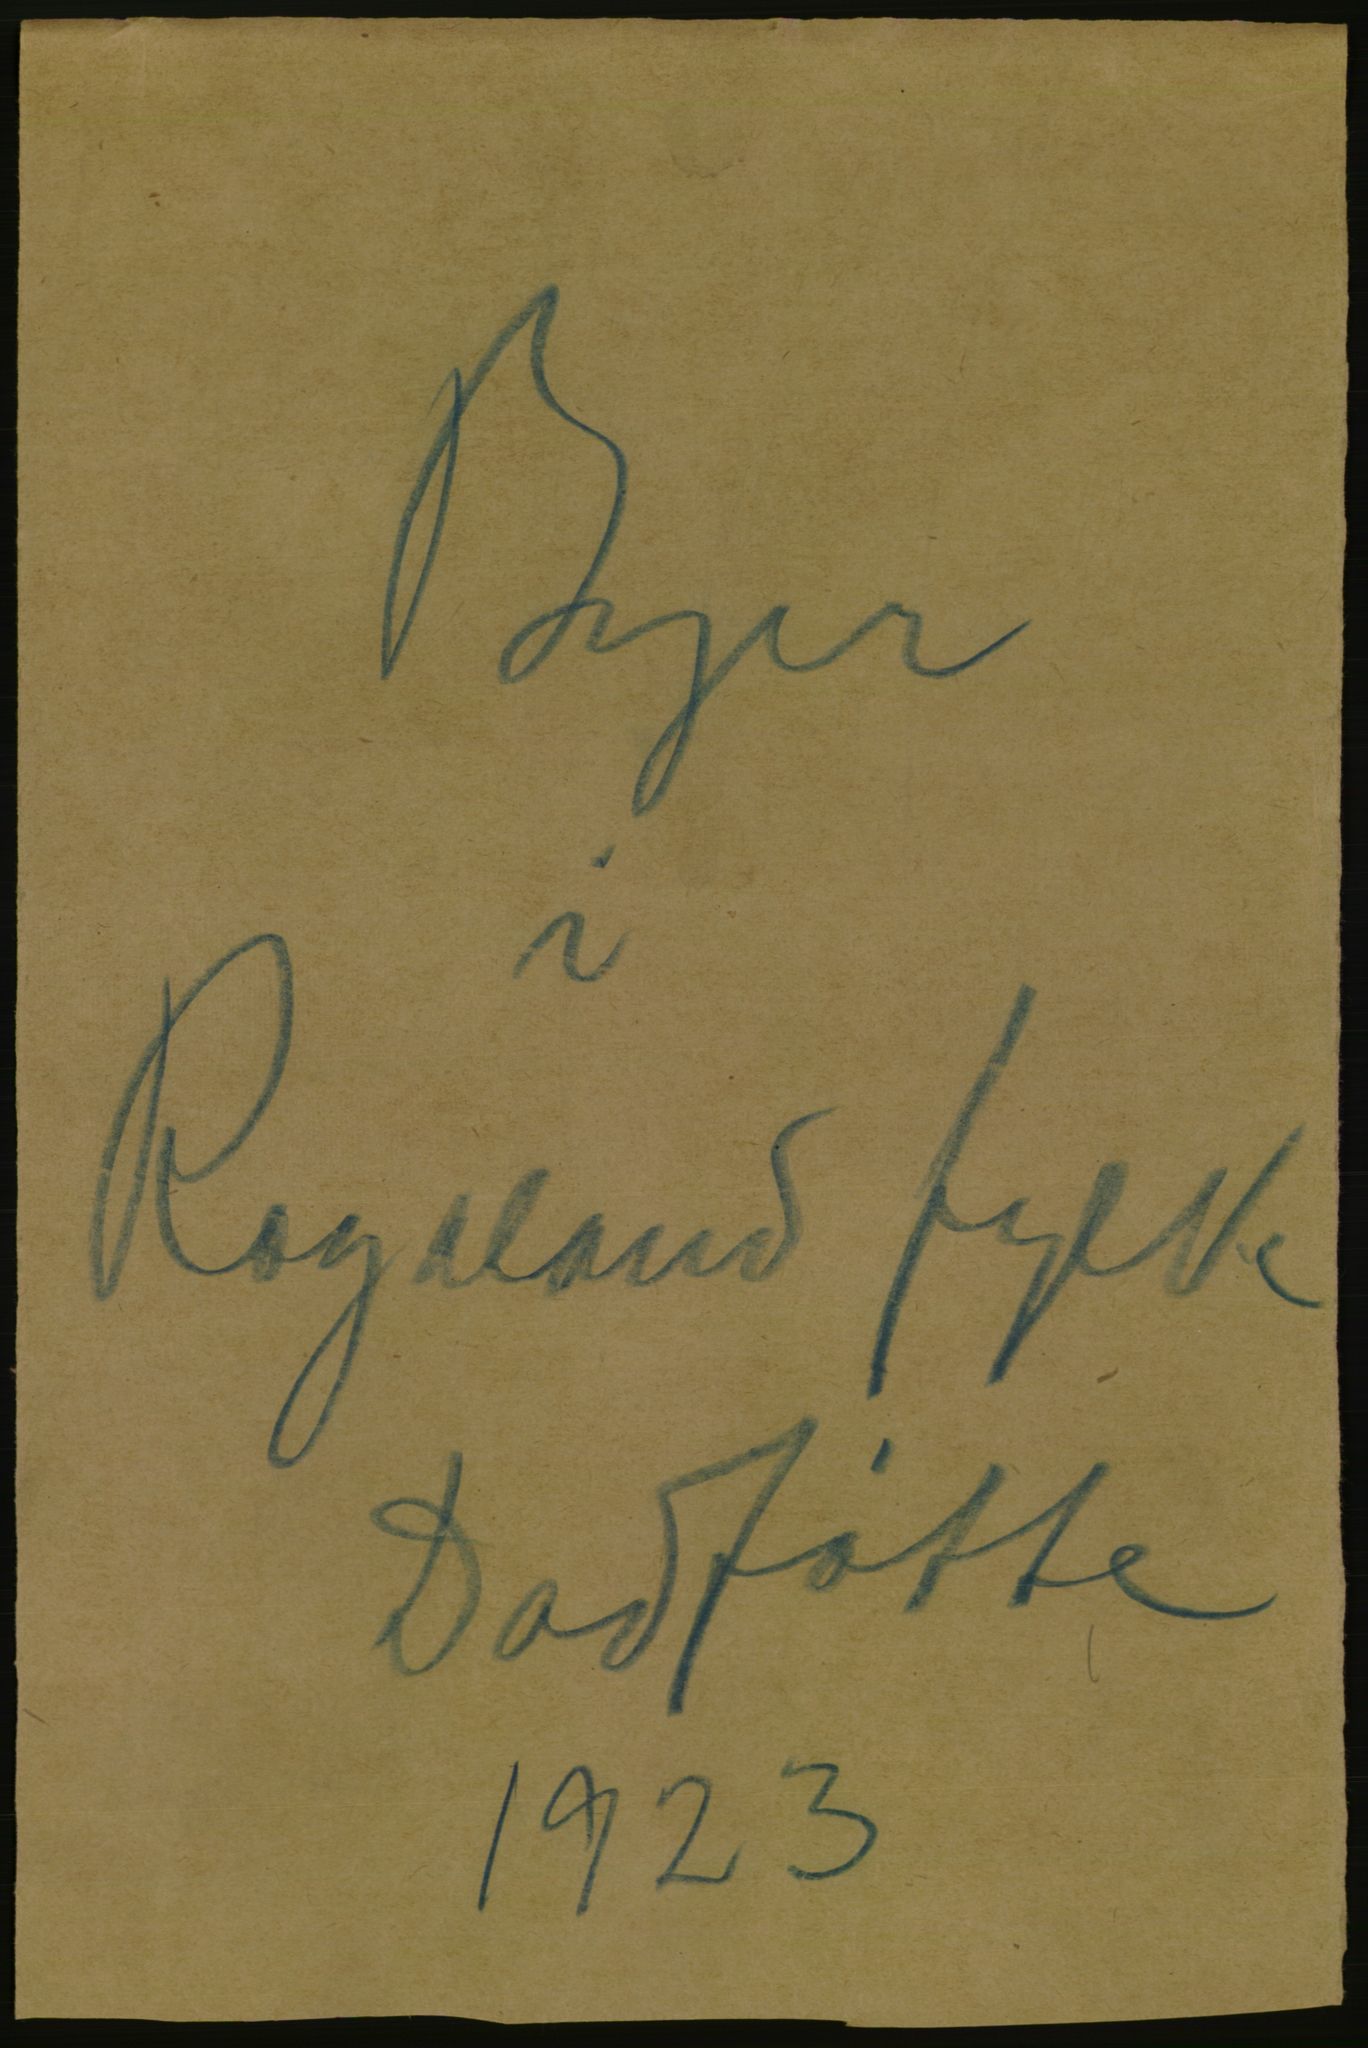 Byer
i
Rogaland fylke
Dødfødte
1923